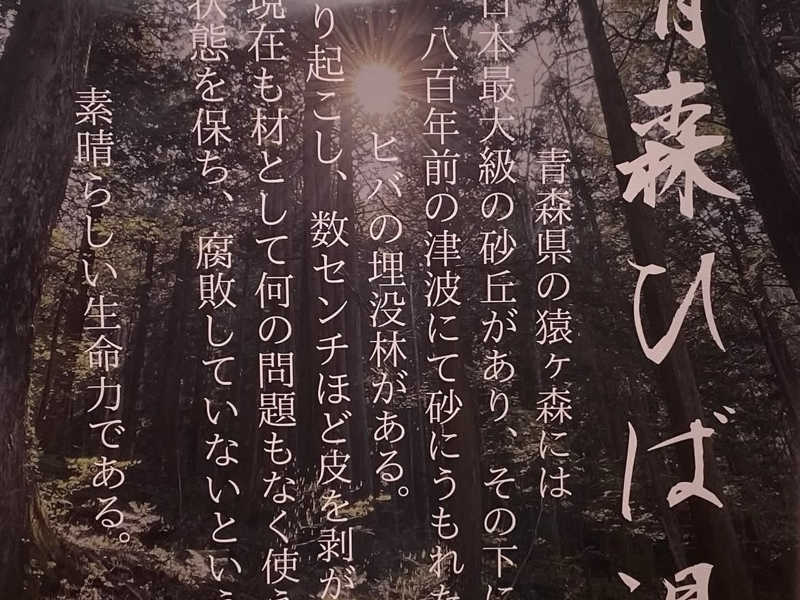 青森ひば湯
青森県の猿ヶ森には
日本最大級の砂丘があり、その下に
八百年前の津波にて砂にうもれた
ヒバの埋没林がある。
り起こし、数センチほど皮を剥が
現在も材として何の問題もなく使う
状態を保ち、腐敗していないという
素晴らしい生命力である。